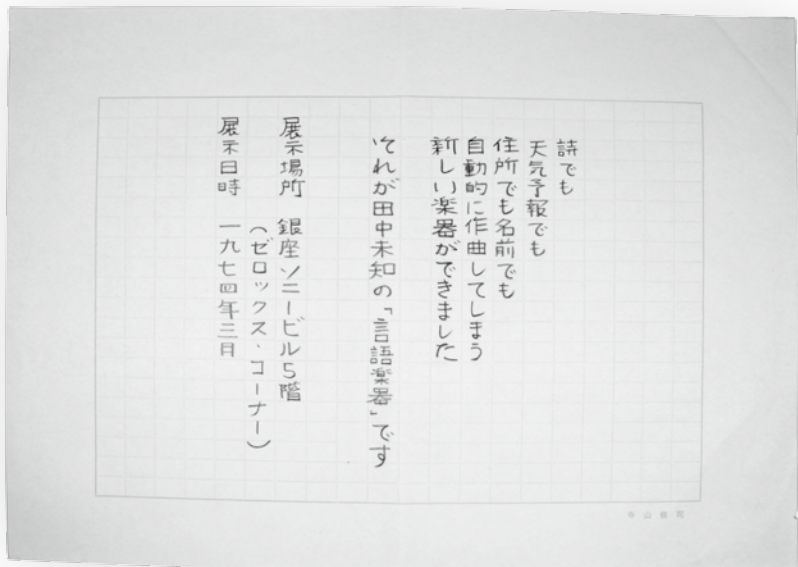 詩でも
天気予報でも
住所でも名前でも
自動的に作曲してしまう
新しい楽器ができました
それが田中未知の「言語楽器」です
展示場所　銀座ソニービル5階
（ゼロックス・コーナー）
展示日時　一九七四年三月
寺山修司